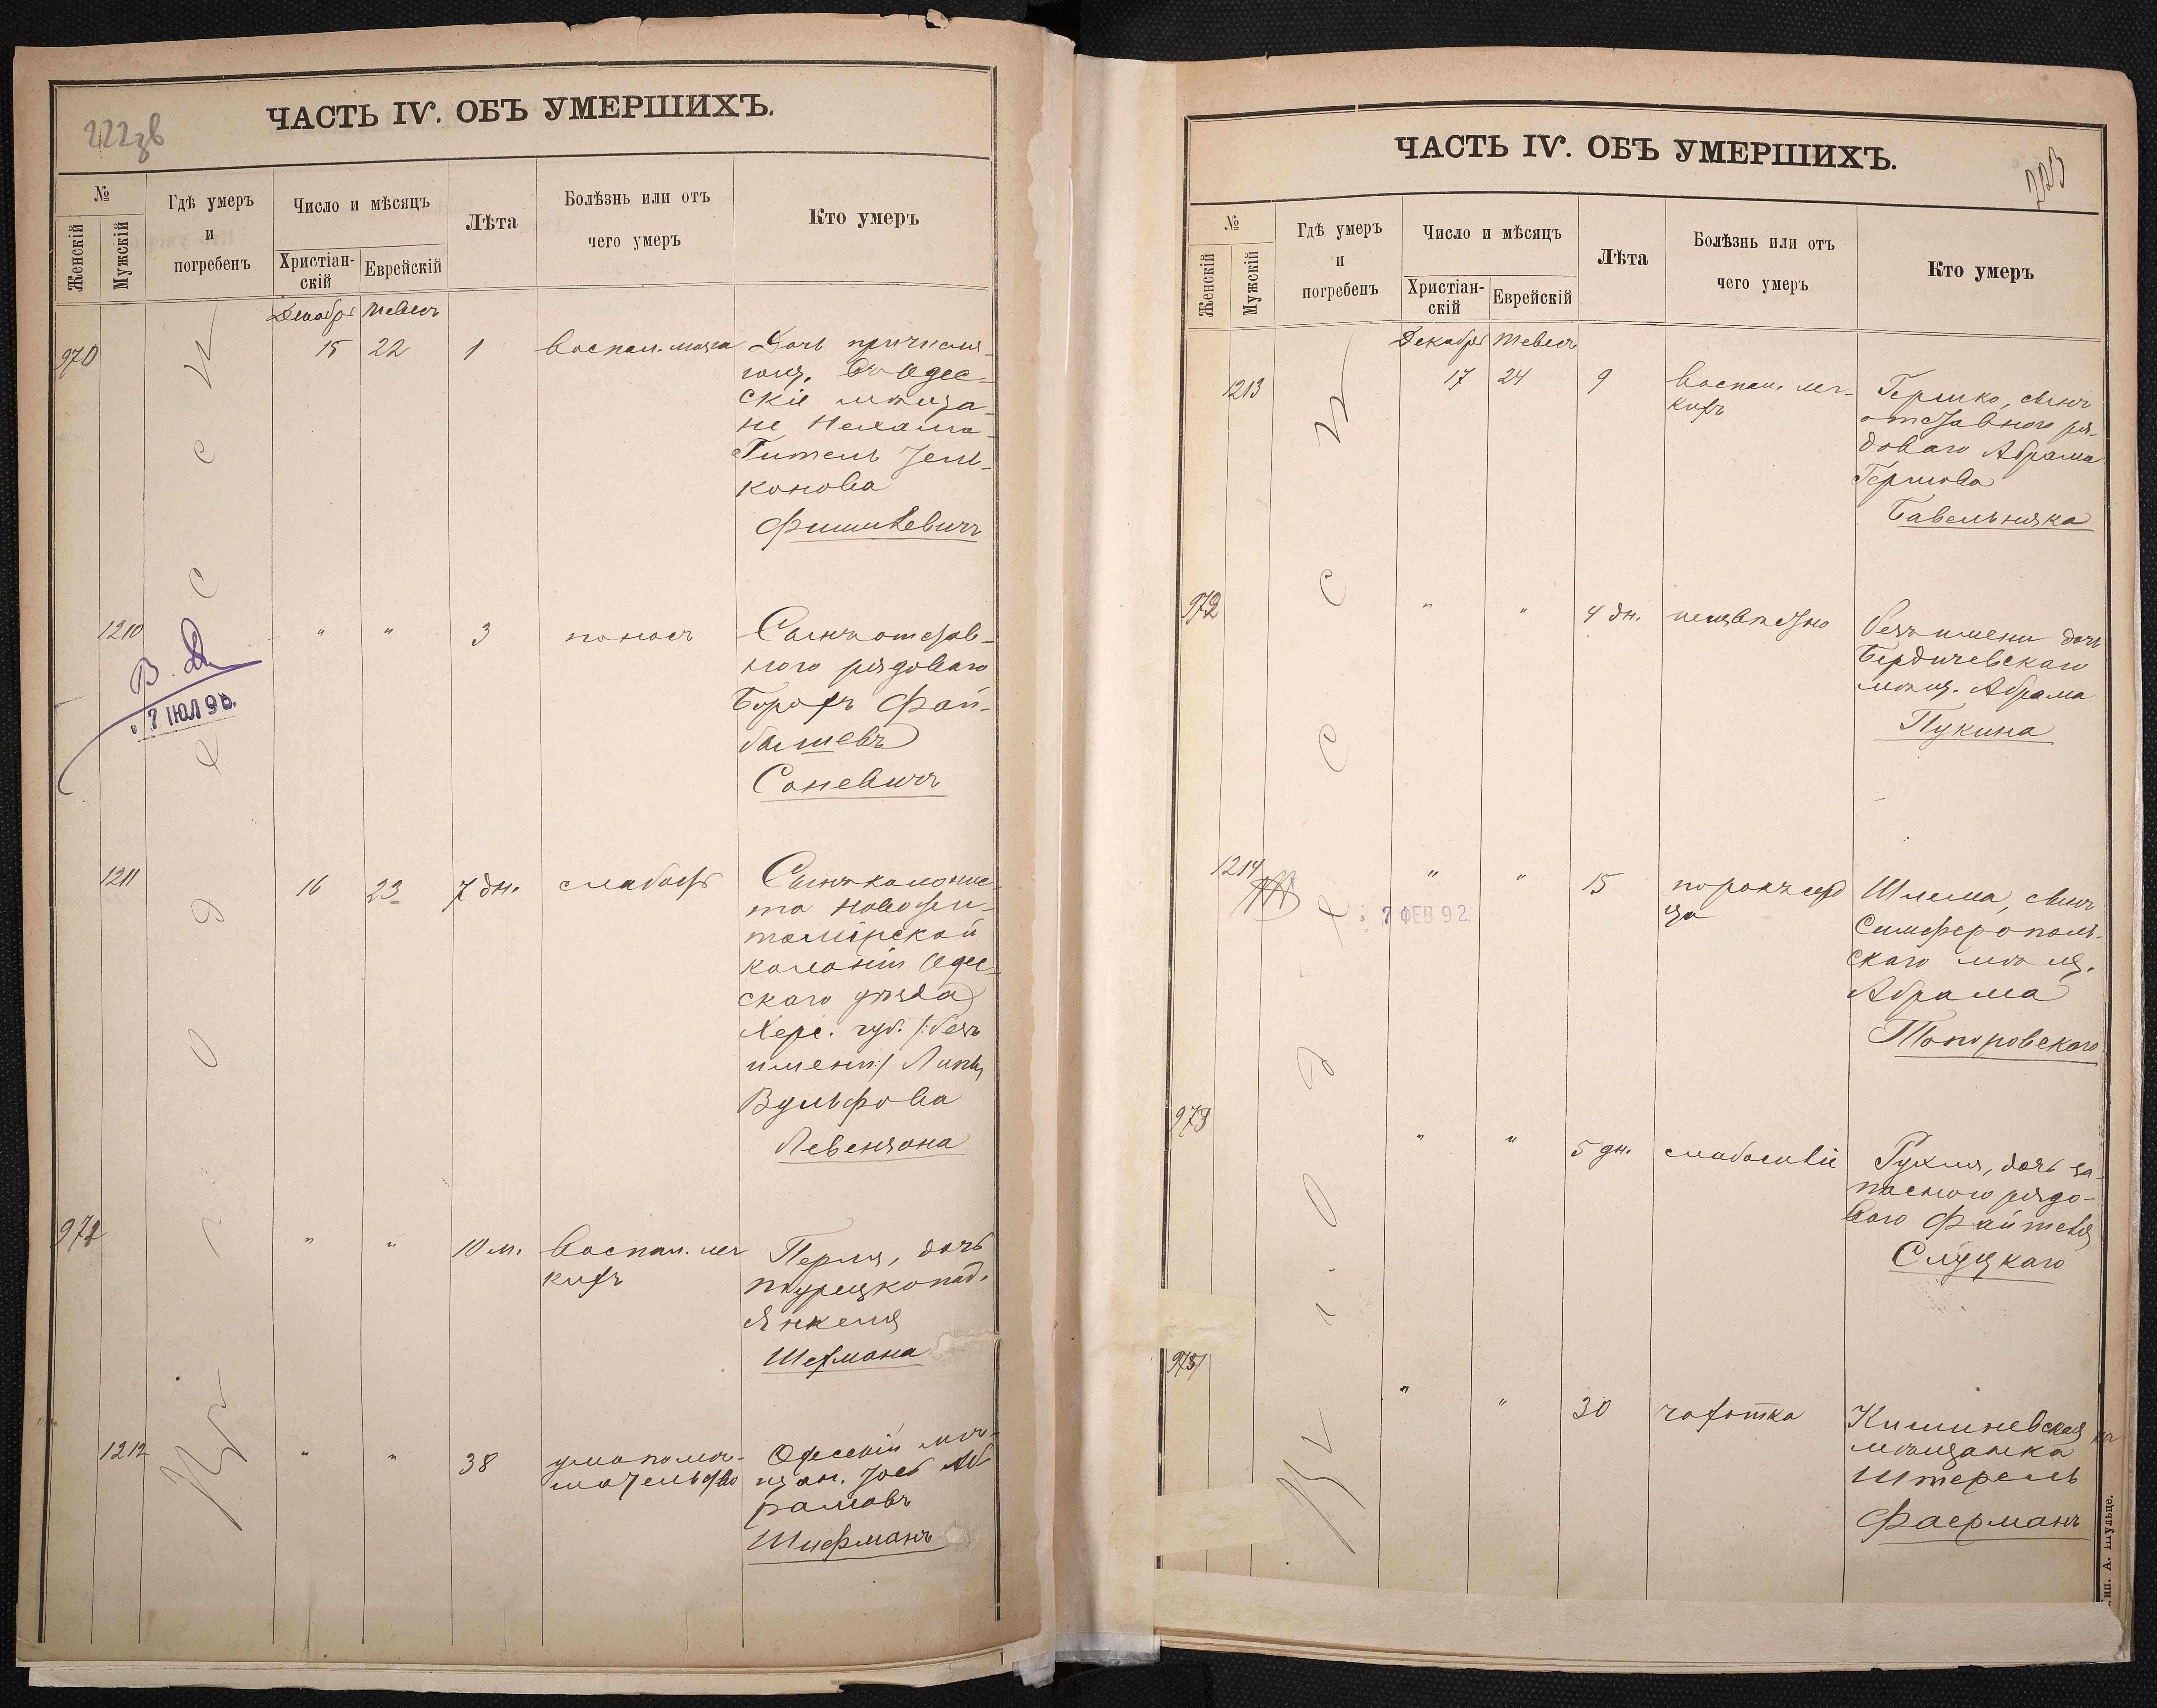 ЧАСТЬ IV. ОБЪ УМЕРШИХЪ.
№
Женскій
Мужскій
Гдѣ умеръ
и
погребенъ
Число и мѣсяцъ
Христіан-
скій
Еврейскій
Лѣта
Болѣзнь или отъ
чего умеръ
Кто умеръ
Одессѣ
Декабрь Тевесъ
970 15 22 1 воспал. мозга
Дочь причисл.
въ Одес-
скіе мѣща-
не Нехама-
Гитель Зель-
конова
Фишкевичъ
1210 " " 3 поносъ
В.
7 ІЮЛ 96.
Сынъ отстав-
ного рядоваго
Борохъ Фай-
бышевъ
Соневичъ
1211 16 23 7 дн. слабость
Сынъ колонис-
та Новожи-
томірской
колоніи Одес-
скаго уѣзда
Херс. губ. /:безъ
имени:/ Липы
Вульфова
Левензона
971 " " 10 м. воспал. лег
кихъ
Перля, дочь
турецкопод.
Янкеля
Шехмана
1212 " " 38 умопомѣ-
шательство
Одесскій мѣ-
щан. Іось Аб
рамовъ
Шифманъ
ЧАСТЬ IV. ОБЪ УМЕРШИХЪ.
223
№
Женскій
Мужскій
Гдѣ умеръ
и
погребенъ
Число и мѣсяцъ
Христіан-
скій
Еврейскій
Лѣта
Болѣзнь или отъ
чего умеръ
Кто умеръ
Одессѣ
Декабрь Тевесъ
1213 17 24 9 воспал. лег-
кихъ
Гершко, сынъ
отставного ря-
доваго Абрама
Гершова
Бавельняка
972 " " 4 дн. неизвѣстно
безъ имени дочь
Бердичевскаго
мѣщ. Абрама
Пукина
1214 " " 15 порокъ серд
ца
7 ФЕВ 92
Шлема, сынъ
Симферополь-
скаго мѣщ.
Абрама
Топоровскаго
973 " " 5 дн. слабосиліе
Рухля, дочь за-
паснаго рядо-
ваго Файтеля
Слуцкаго
" " 30 чахотка
Кишиневская
мѣщанка
Штерель
Фаерманъ
Тип. А. Шульце.